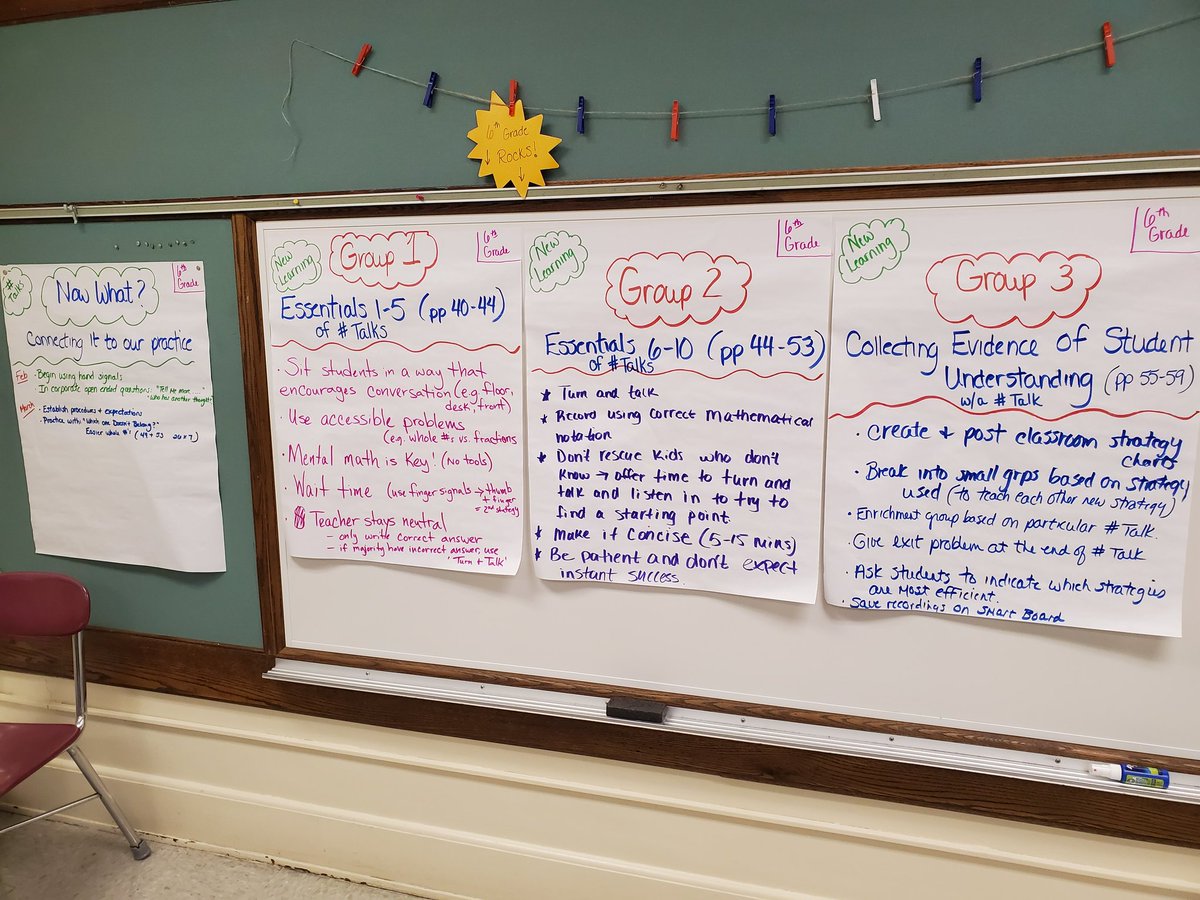 6th Grade
Rocks!
# Talks
Now What?
6th
Grade
Connecting It to our practice
Feb
· Begin using hand signals
In corporate open ended questions: "Tell Me more...."
· Who has another thought"
March
· Establish procedures + expectations
· Practice with: "Which one Doesn't Belong?"
Easier whole #'s (49+53 26x7)
New
Learning
Group 1
6th
Grade
Essentials 1-5 (pp 40-44)
of # Talks
· Sit students in a way that
encourages conversation (e.g. floor,
desk, front)
· Use accessible problems
(e.g. whole #s vs. fractions
· Mental math is Key! (No tools)
· Wait time (use finger signals → thumb
+ finger
= 2nd strategy
· Teacher stays neutral
- only write correct answer
- if majority have incorrect answer, use
'Turn + Talk'
New
Learning
Group 2
6th
Grade
Essentials 6-10 (pp 44-53)
of # Talks
★ Turn and talk
★ Record using correct mathematical
notation
★ Don't rescue kids who don't
know → offer time to turn and
talk and listen in to try to
find a starting point.
★ Make it concise (5-15 mins)
★ Be patient and don't expect
instant success.
New
Learning
Group 3
6th
Grade
Collecting Evidence of Student
Understanding (pp 55-59)
w/a # Talk
· Create + post classroom strategy
charts
· Break into small grps based on strategy
used (to teach each other new strategy)
· Enrichment group based on particular # Talk.
· Give exit problem at the end of # Talk
· Ask students to indicate which strategies
are most efficient.
· Save recordings on Smart Board